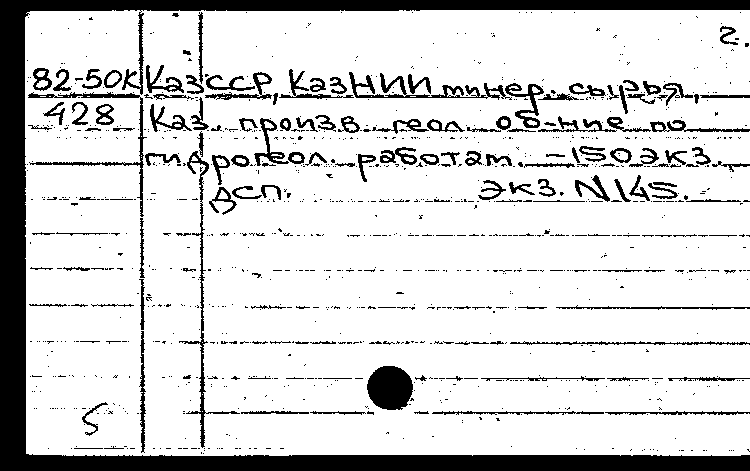 2.
82-50К КазССР, КазНИИ минер. сырья,
428 Каз. произв. геол. об-ние по
гидрогеол. работам. - 150 экз.
ДСП. Экз. N 145.
5